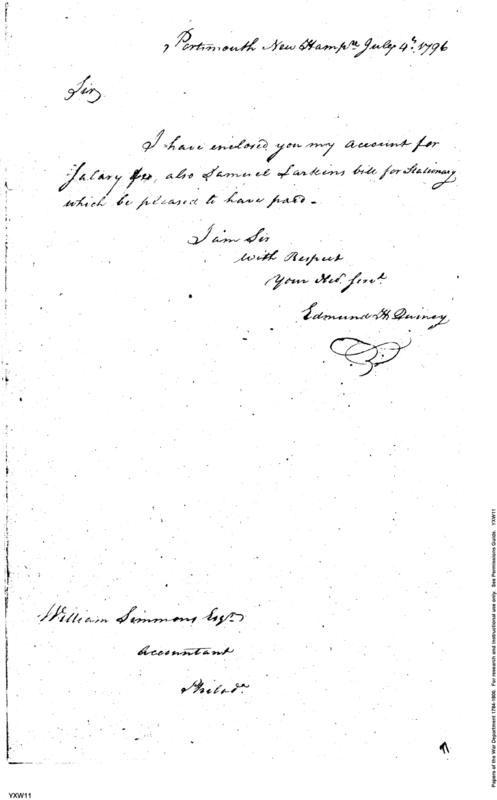 Portsmouth New Hampe. July 4th. 1796
Sir
I have enclosed you my account for
Salary &c, also Samuel Larkins bill for Stationary
which be pleased to have paid.
I am Sir
with Respect
Your Hbl. Servt.
Edmund H Quincy
William Simmons Esqr.
Accountant
Philada.
Papers of the War Department 1784-1800. For research and instructional use only. See Permissions Guide. YXW11
YXW11